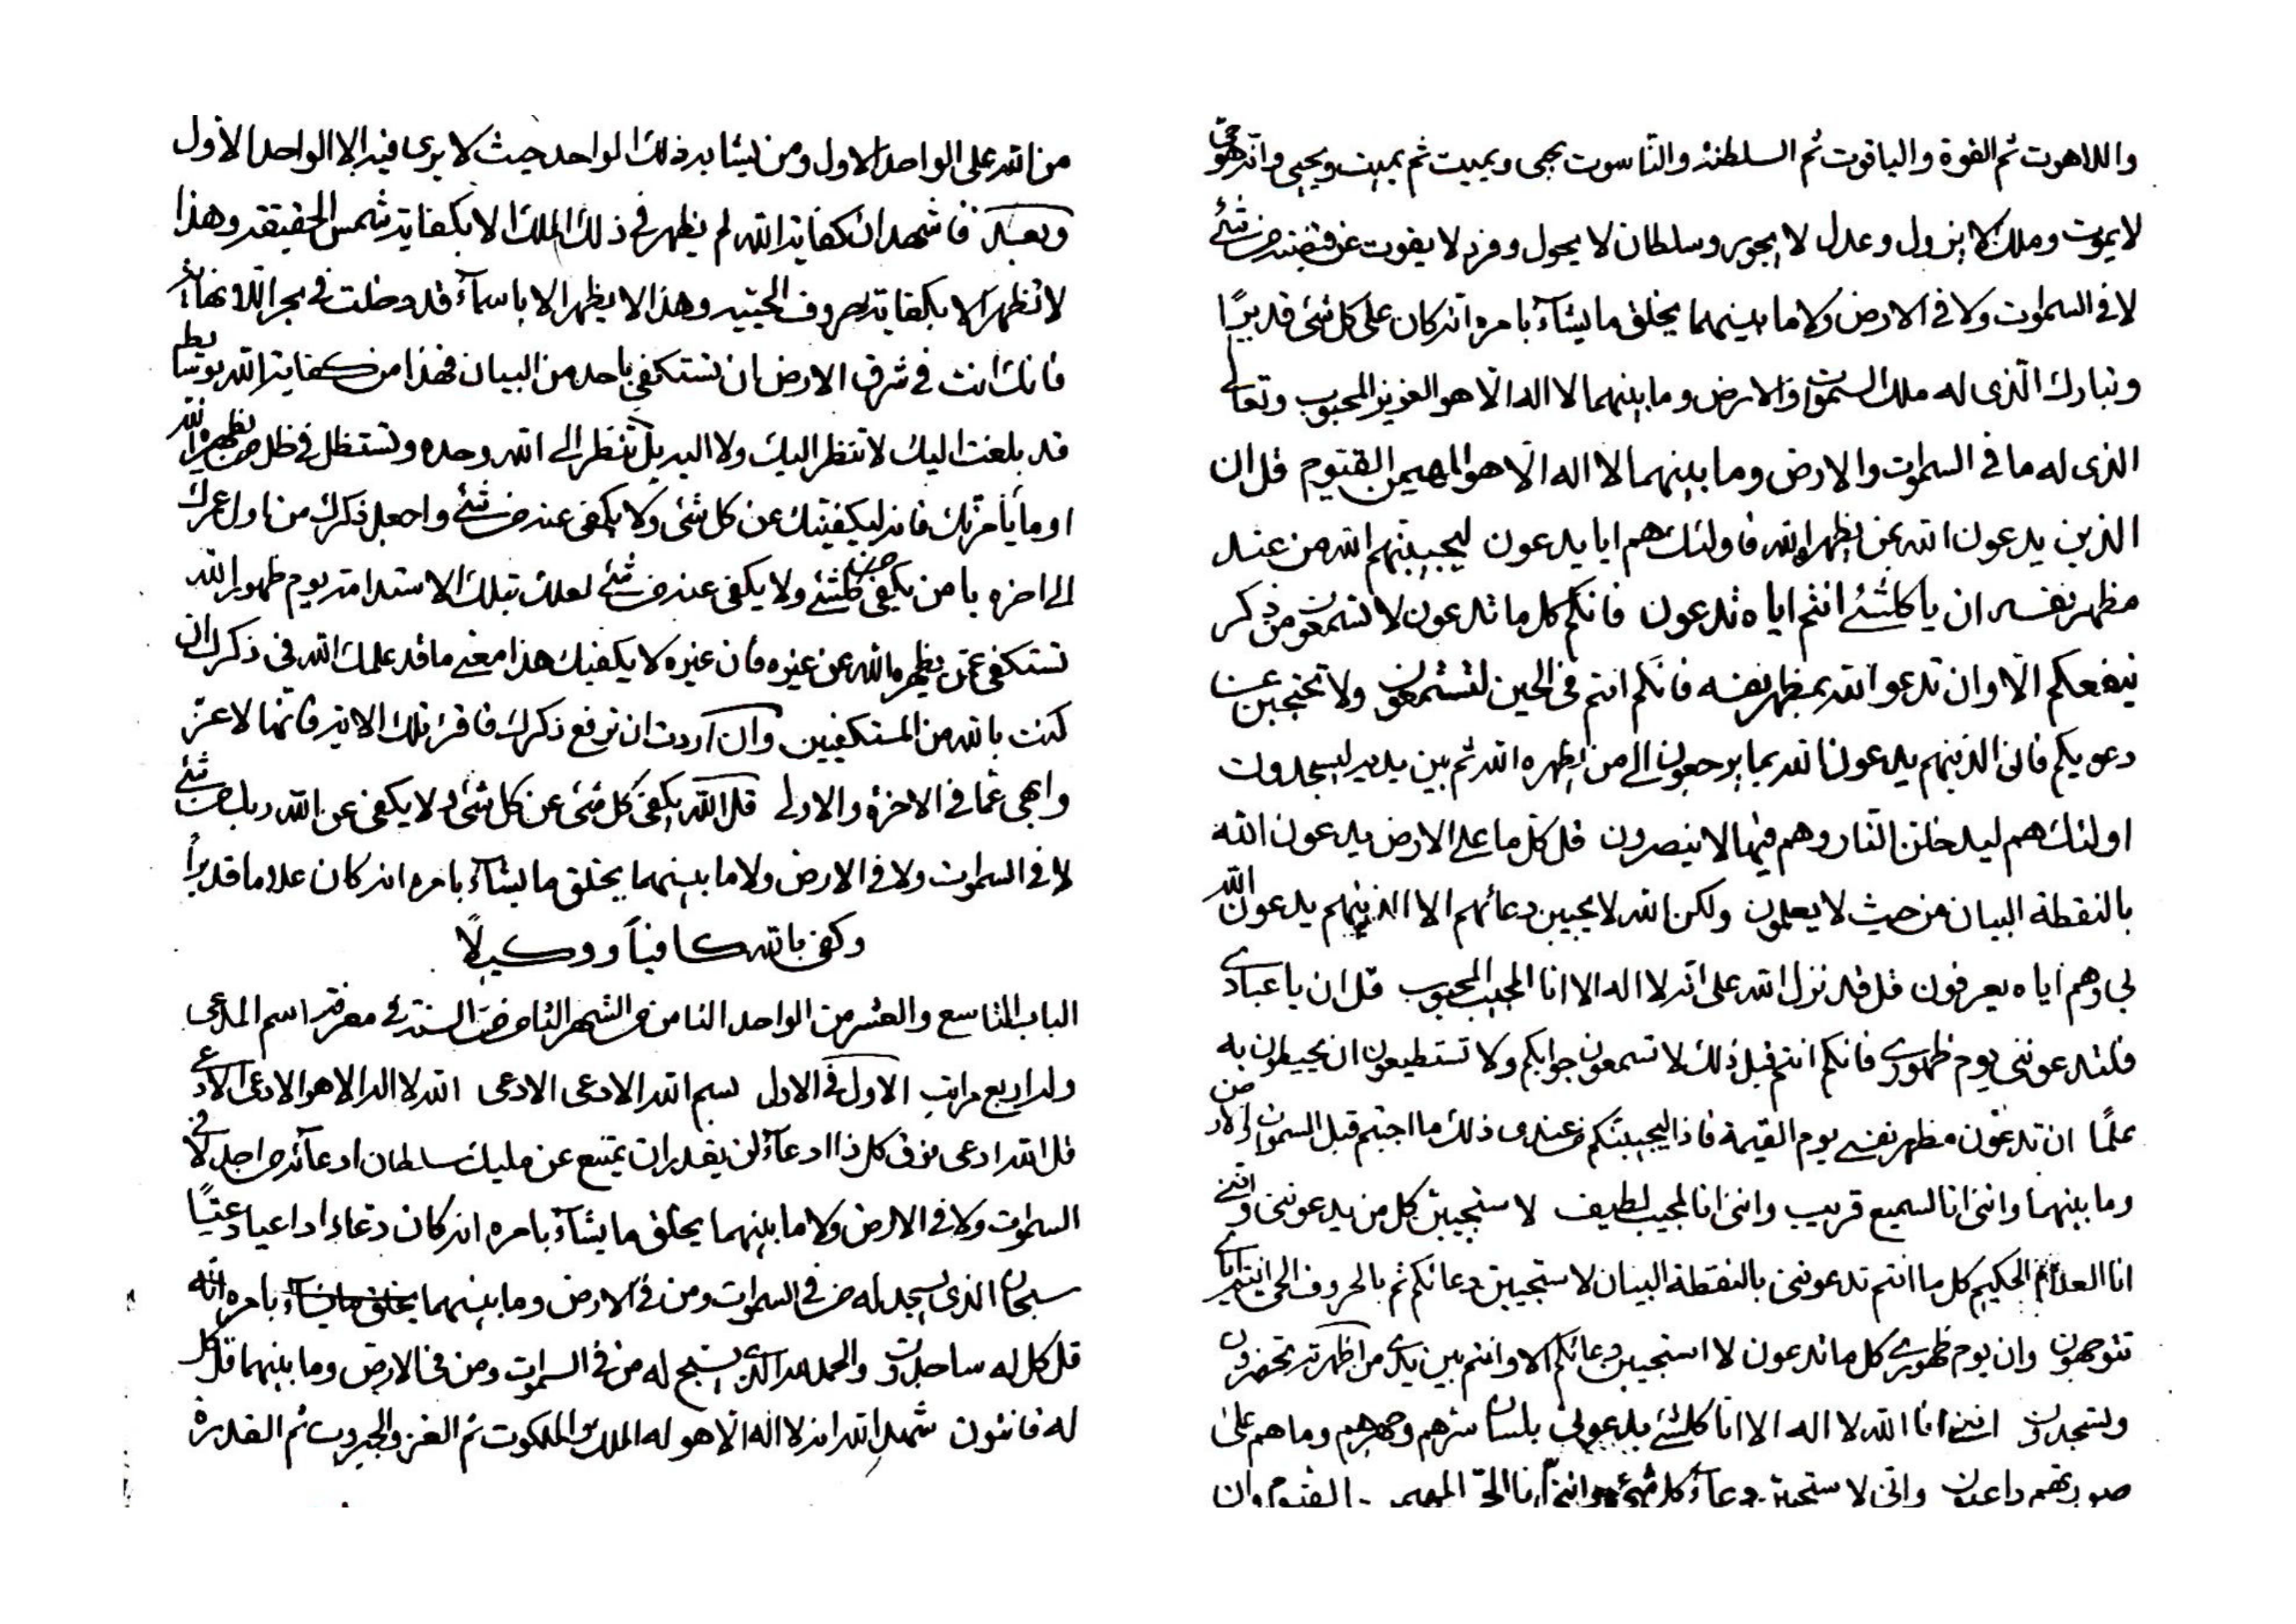 من الله على الواحد الاول ومن يشابه ذلك الواحد حيث لا يرى فيه الا الواحد الاول
وبعد فاشهد ان كفاية الله لم يظهر في ذلك الملك الا بكفاية شمس الحقيقة وهذا
لا تظهر الا بكفاية حروف الحيية وهذا لا يظهر الا باسمآء قد دخلت في بحر اللانهاية
فانك انت في شرق الارض ان تستكفي باحد من البيان فهذا من كفاية الله بوسايط
قد بلغت اليك لا تنظر اليك ولا اليه بل تنظر الى الله وحده وتستظل في ظل من يظهره الله
او ما يأمرنك فانه ليكفينك عن كل شئ ولا يكفي عنه من شئ واجعل ذكرك من اول عمرك
الى اخره يا من يكفي من كلشئ ولا يكفي عنه من شئ لعلك بتلك الاستدامة يوم ظهور الله
تستكفي بمن يظهره الله عن غيره فان غيره لا يكفيك هذا معنى ما قد علمك الله في ذكرك ان
كنت بالله من المستكفيين وان اردت ان ترفع ذكرك فاقرء تلك الاية فانها لاعز
وابهى عما في الاخرة والاولى قل الله يكفي كل شئ عن كل شئ ولا يكفي عن الله ربك من شئ
لا في السموات ولا في الارض ولا ما بينهما يخلق ما يشآء بامره انه كان علاما قديراً
وكفى بالله كافياً ووكيلاً
الباب التاسع والعشر من الواحد الثامن من الشهر الثامن من السنة في معرفة اسم المدعي
وله اربع مراتب الاول في الاول بسم الله الادعى الادعى الله لا اله الا هو الادعى الادعى
قل الله ادعى فوق كل ذا ادعآء لن يقدر ان يمتنع عن مليك سلطان ادعآئه من احد لا في
السموات ولا في الارض ولا ما بينهما يخلق ما يشآء بامره انه كان دعاءا داعيا دعيًا
سبحان الذي يسجد له من في السموات ومن في الارض وما بينهما يخلق ما يشآء بامره انه
قل كل له ساجدون والحمد لله الذي يسبح له من في السموات ومن في الارض وما بينهما قل كل
له قانتون شهد الله انه لا اله الا هو له الملك والملكوت ثم العز والجبروت ثم القدرة
واللاهوت ثم القوة والياقوت ثم السلطنة والناسوت يحيى ويميت ثم يميت ويحيى وانه هو حي
لا يموت وملك لا يزول وعدل لا يجور وسلطان لا يحول وفرد لا يفوت عن قبضته من شئ
لا في السموات ولا في الارض ولا ما بينهما يخلق ما يشآء بامره انه كان على كل شئ قديرًا
وتبارك الذى له ملك السموات والارض وما بينهما لا اله الا هو العزيز المحبوب وتعالى
الذى له ما في السموات والارض وما بينهما لا اله الا هو المهيمن القيوم قل ان
الذين يدعون الله بمن يظهره الله فاولئك هم ايا يدعون ليجيبنهم الله من عند
مظهر نفسه ان يا كلشئ انتم اياه تدعون فانكم كل ما تدعون لا تسمعون من ذكر
ينفعكم الا وان تدعو الله بمظهر نفسه فانكم انتم في الحين لتسمعون ولا تحتجبن عن
دعويكم فان الذينهم يدعون الله بما يرجعون الى من يظهره الله ثم بين يديه ليسجدون
اولئك هم ليدخلن النار وهم فيها لا ينصرون قل كل ما على الارض يدعون الله
بالنقطة البيان من حيث لا يعلمون ولكن الله لا يجيبن دعائهم الا الذينهم يدعون الله
بي وهم اياه يعرفون قل قد نزل الله على انه لا اله الا انا المجيب المحبوب قل ان يا عبادي
فلتدعونني يوم ظهوري فانكم انتم قبل ذلك لا تسمعون جوابكم ولا تستطيعون ان يحيطون به
علمًا ان تدعون مظهر نفسي يوم القيمة فاذا ليجيبنكم من عندى ذلك ما اجبتم قبل السموات والارض
وما بينهما وانني انا السميع قريب وانني انا المجيب لطيف لا ستجيبن كل من يدعونني وانني
انا العلام الحكيم كل ما انتم تدعونني بالنقطة البيان لا ستجيبن دعائكم ثم بالحروف الحي انتم اياي
تتوجهون وان يوم ظهوري كل ما تدعون لا استجيبن دعائكم الا وانتم بين يدي من اظهرته تحضرون
ولتسجدون انني انا الله لا اله الا انا كلشئ يدعوني بلسان سرهم وجهرهم وما هم على
صورتهم داعون واني لا ستجيبن دعآء كل شئ وانني انا الحي المهيمن القيوم وان